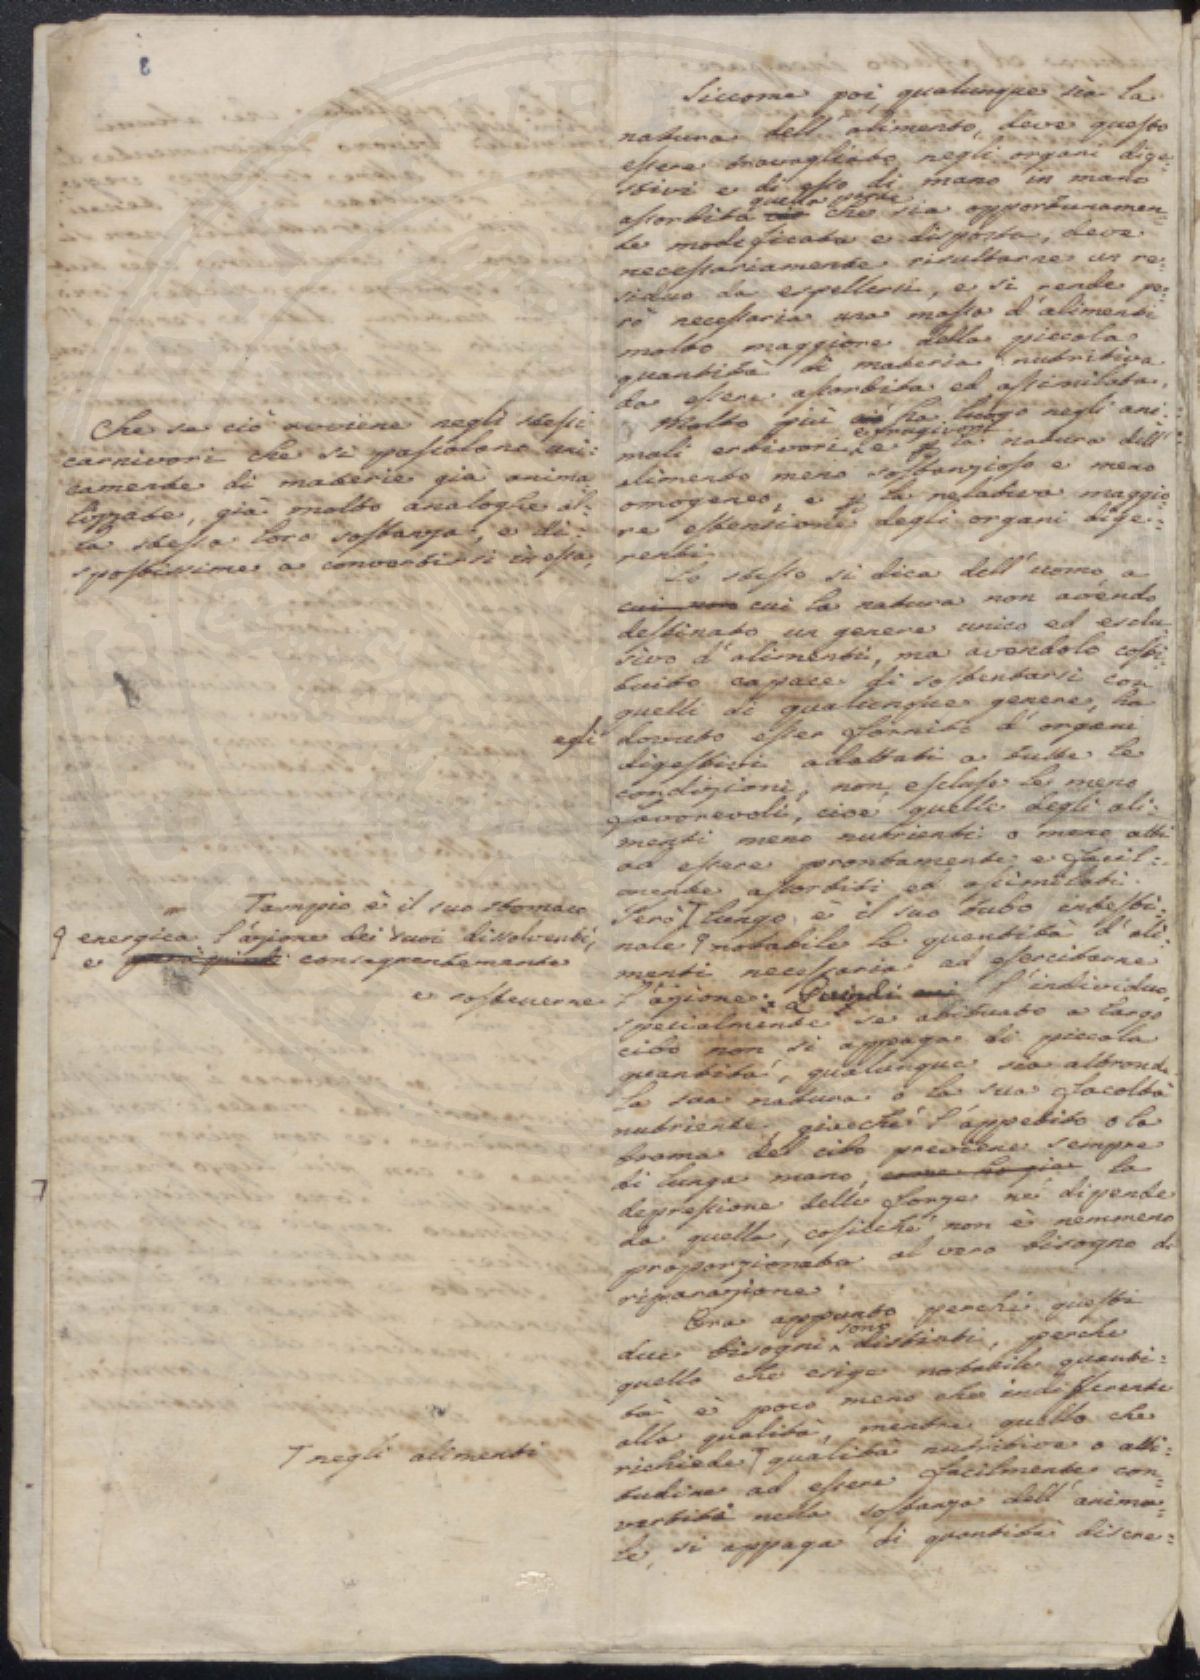 8
Siccome poi, qualunque sia la
natura dell'alimento, deve questo
essere travagliato negli organi dige-
stivi e di esso di mano in mano
quella parte
assorbita che sia opportunamen-
te modificata e disposta, deve
necessariamente risultarne un re-
siduo da espellersi, e si rende pe-
rò necessaria una massa d'alimenti
molto maggiore della piccola
quantità di materia nutritiva
da essere assorbita ed assimilata.
Che se ciò avviene negli stessi
carnivori che si pascolano uni-
camente di materie già anima
lizzate, già molto analoghe al-
la stessa loro sostanza, e di-
spostissime a convertirsi in essa,
Molto più ciò ha luogo negli ani-
e frugivori
mali erbivori, e p la natura dell'
alimento meno sostanzioso e meno
omogeneo, e p la relativa maggio-
re estensione degli organi dige-
renti.
Lo stesso si dica dell'uomo, a
cui non cui la natura non avendo
destinato un genere unico ed esclu-
sivo d'alimenti, ma avendolo costi-
tuito capace di sostentarsi con
quelli di qualunque genere, ha
egli
dovuto esser fornito d'organi
digestivi adattati a tutte le
condizioni, non escluse le meno
favorevoli, cioè quelle degli ali-
menti meno nutrienti o meno atti
ad essere prontamente e facil-
mente assorbiti ed assimilati.
T ampio è il suo stomaco
Però T lungo è il suo tubo intesti-
9 energica l'azione dei suoi dissolventi,
e consequentemente
nale 9 notabile la quantità d'ali-
menti necessaria ad esercitarne
e sostenerne
l'azione. Quindi l'individuo,
specialmente se abituato a largo
cibo non si appaga di piccola
quantità, qualunque sia altronde
la sua natura o la sua facoltà
nutriente, giacchè l'appetito o la
brama del cibo previene sempre
di lunga mano, come ho già la
depressione delle forze nè dipende
da quella, cosicchè non è nemmeno
proporzionata al vero bisogno di
riparazione.
Ora appunto perchè questi
sono
due bisogni distinti, perchè
quello che esige notabile quanti-
tà è poco meno che indifferente
alla qualità, mentre quello che
T negli alimenti
richiede T qualità nutritive o atti-
tudine ad essere facilmente con-
vertiti nella sostanza dell'anima-
le, si appaga di quantità discre-